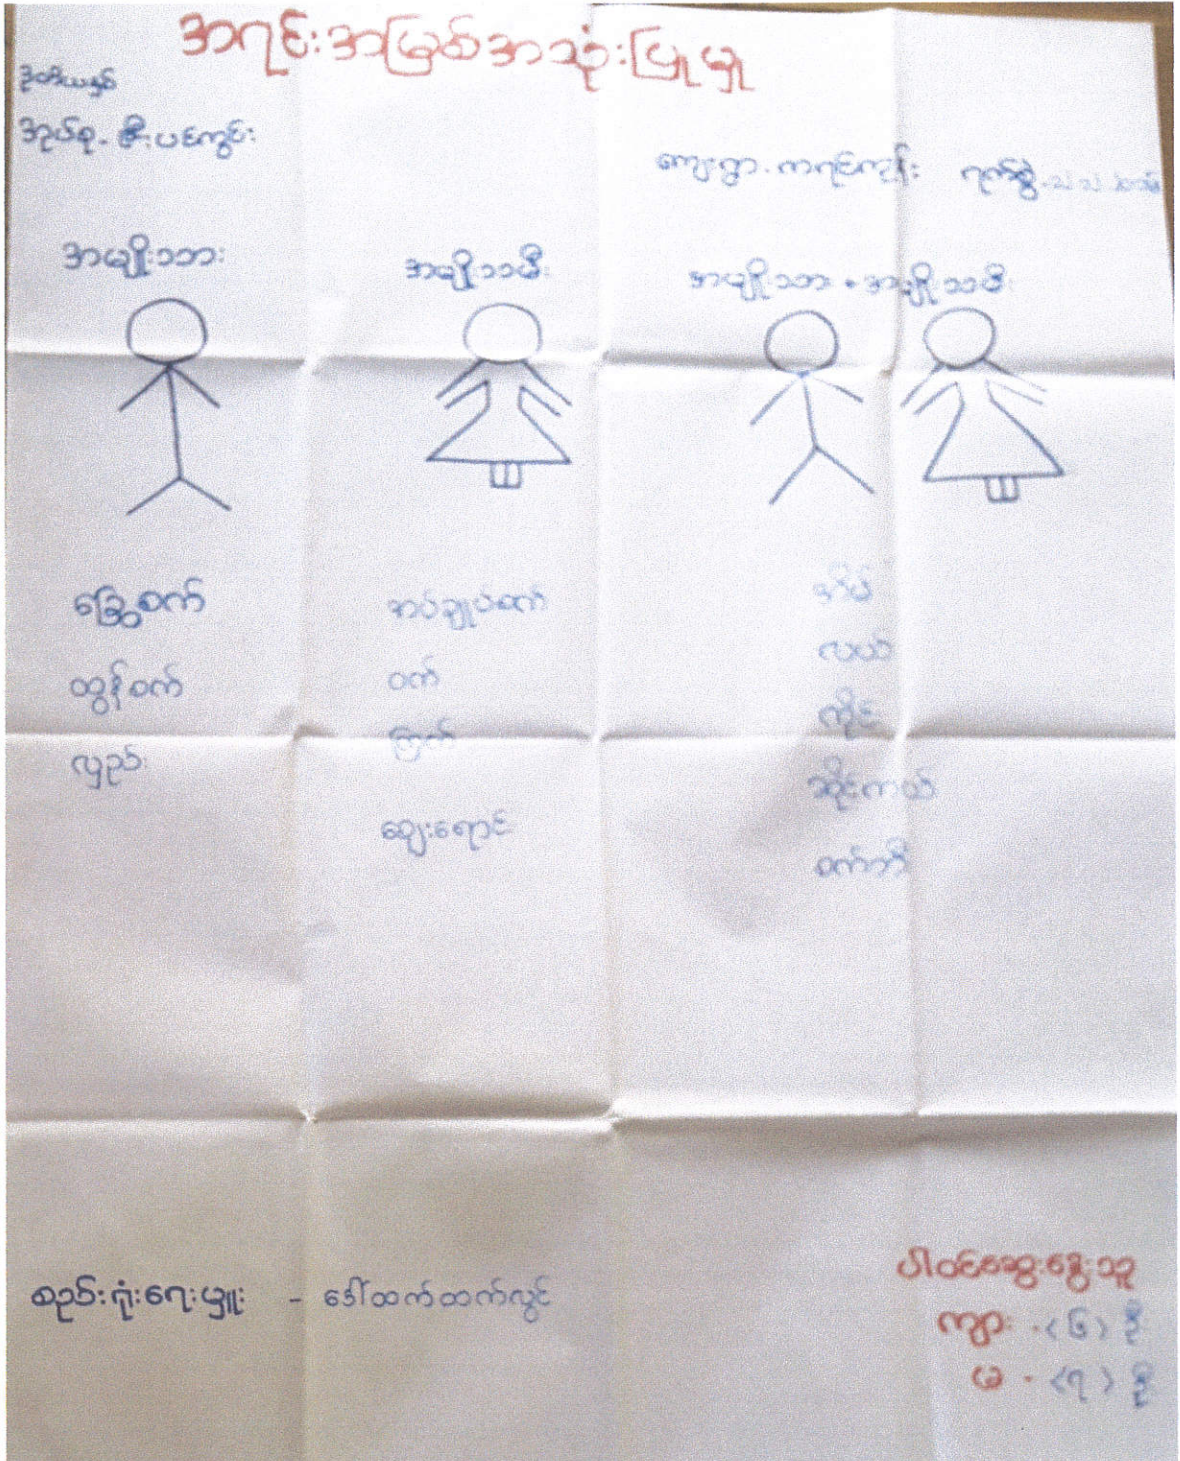 အရင်းအမြစ်အသုံးပြုမှု
ဒုတိယနှစ်
အုပ်စု - ဇီးပင်ကွင်း
ကျေးရွာ - ကရင်ကုန်း ရက်စွဲ -
အမျိုးသား
အမျိုးသမီး
အမျိုးသား + အမျိုးသမီး
ခြွေစက်
ထွန်စက်
လှည်း
အပ်ချုပ်စက်
ဝက်
ကြက်
ဈေးရောင်း
အိမ်
လယ်
ကိုင်း
ဆိုင်ကယ်
စက်ဘီး
စည်းရုံးရေးမှူး - ဒေါ်ထက်ထက်လွင်
ပါဝင်ဆွေးနွေးသူ
ကျား - <၆> ဦး
မ - <၇> ဦး